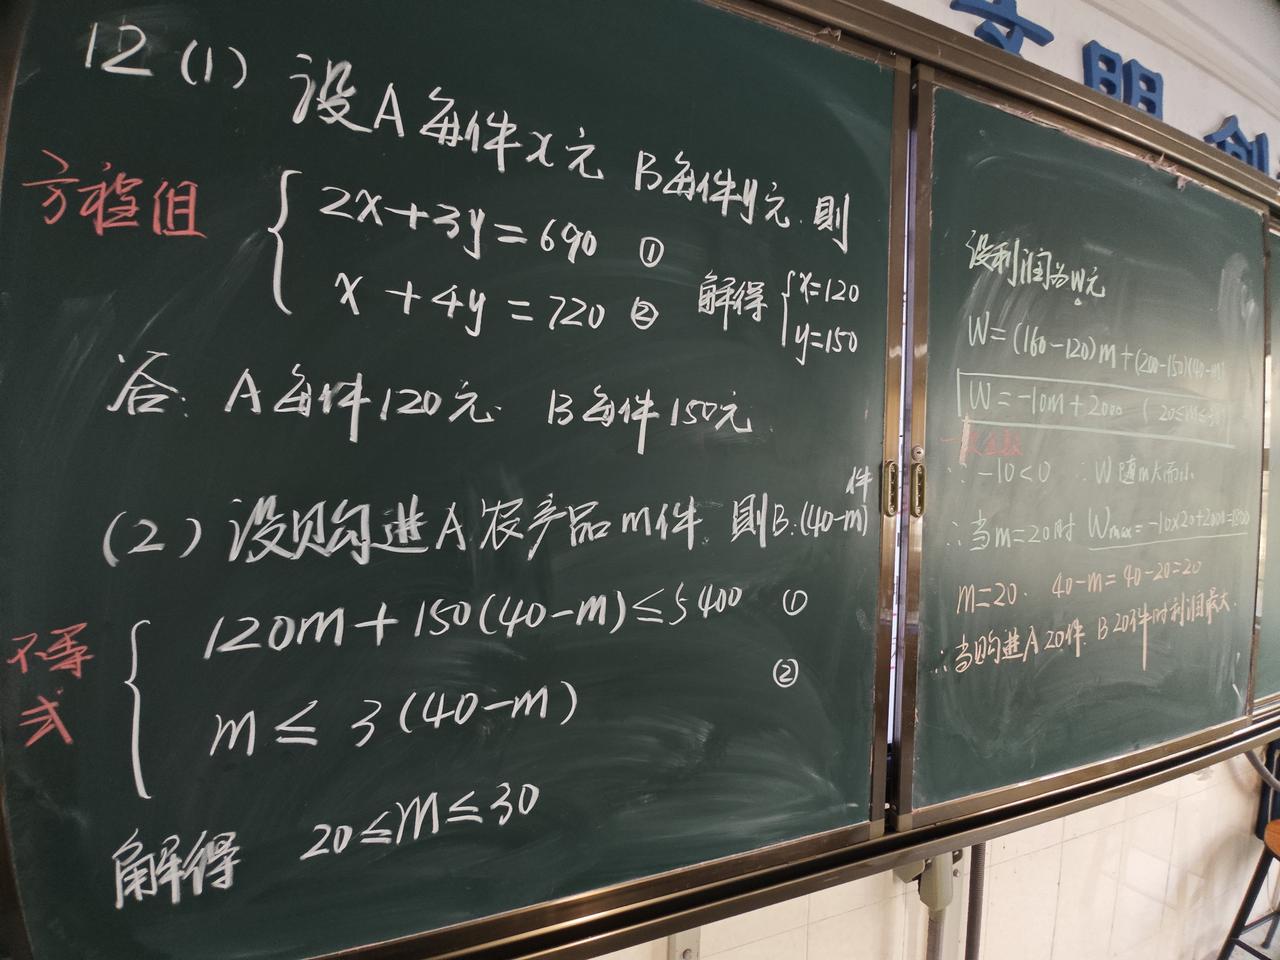 文 明 创
12 (1) 设A每件x元 B每件y元.则
方程组
2x+3y=690 ①
x+4y=720 ②
解得 x=120
y=150
答: A每件120元. B每件150元.
(2) 设购进A农产品m件.则B:(40-m)件
不等式
120m+150(40-m)≤5400 ①
m≤3(40-m) ②
解得 20≤m≤30
设利润为W元
W=(160-120)m+(200-150)(40-m)
W=-10m+2000 (20≤m≤30)
一次函数
∵-10<0 ∴W随m大而小
∴当m=20时 Wmax=-10×20+2000=1800
m=20. 40-m=40-20=20
∴当购进A20件.B20件时利润最大.